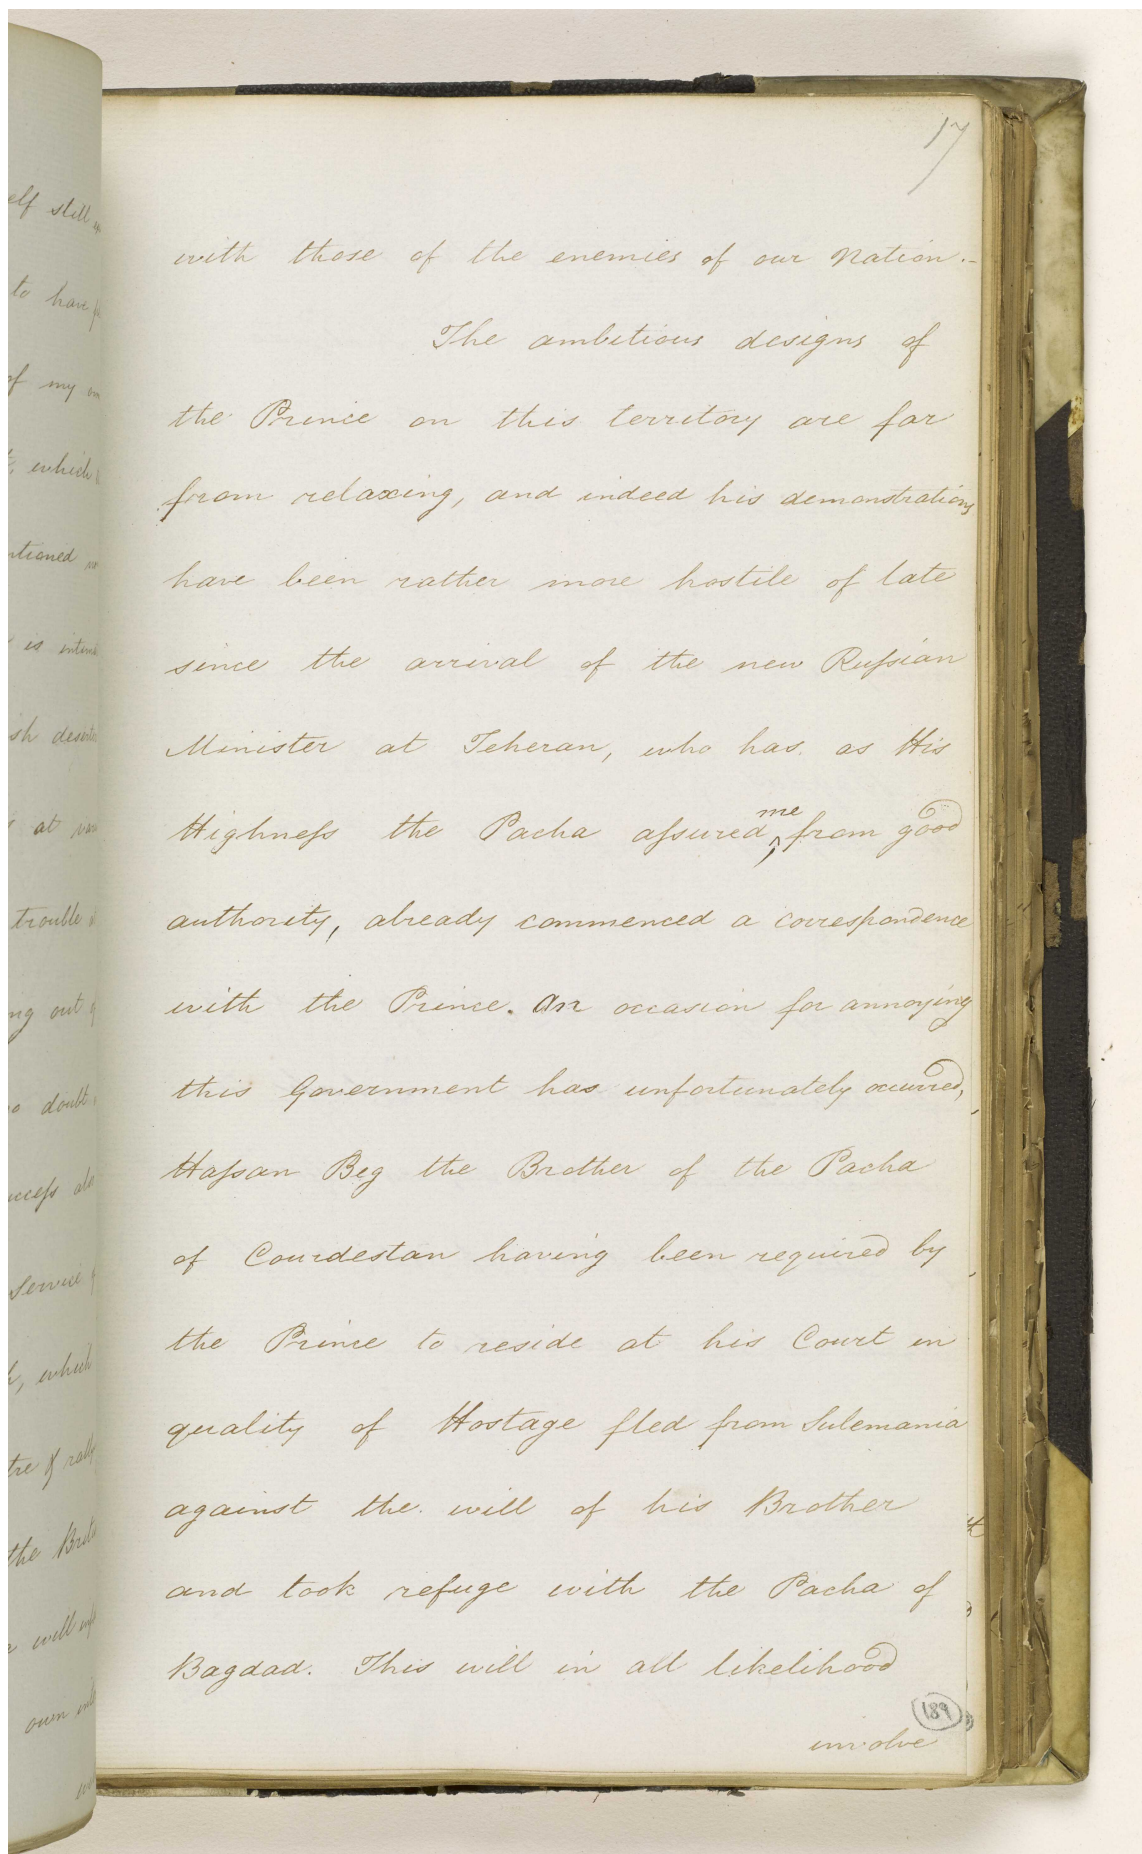 elf still
to have
of my
which
ntioned
is
ish
at
trouble
ng out
doubt
ucefs
Service
which
tre of rally
the
will
own
17
with those of the enemies of our Nation.-
The ambitious designs of
the Prince on this territory are far
from relaxing, and indeed his demonstrations
have been rather more hostile of late
since the arrival of the new Rufsian
Minister at Teheran, who has as His
Highnefs the Pacha afsured me from good
authority, already commenced a correspondence
with the Prince. An occasion for annoying
this Government has unfortunately occurred,
Hafsan Beg the Brother of the Pacha
of Courdestan having been required by
the Prince to reside at his Court in
quality of Hostage fled from Sulemania
against the will of his Brother
and took refuge with the Pacha of
Bagdad. This will in all likelihood
189
involve